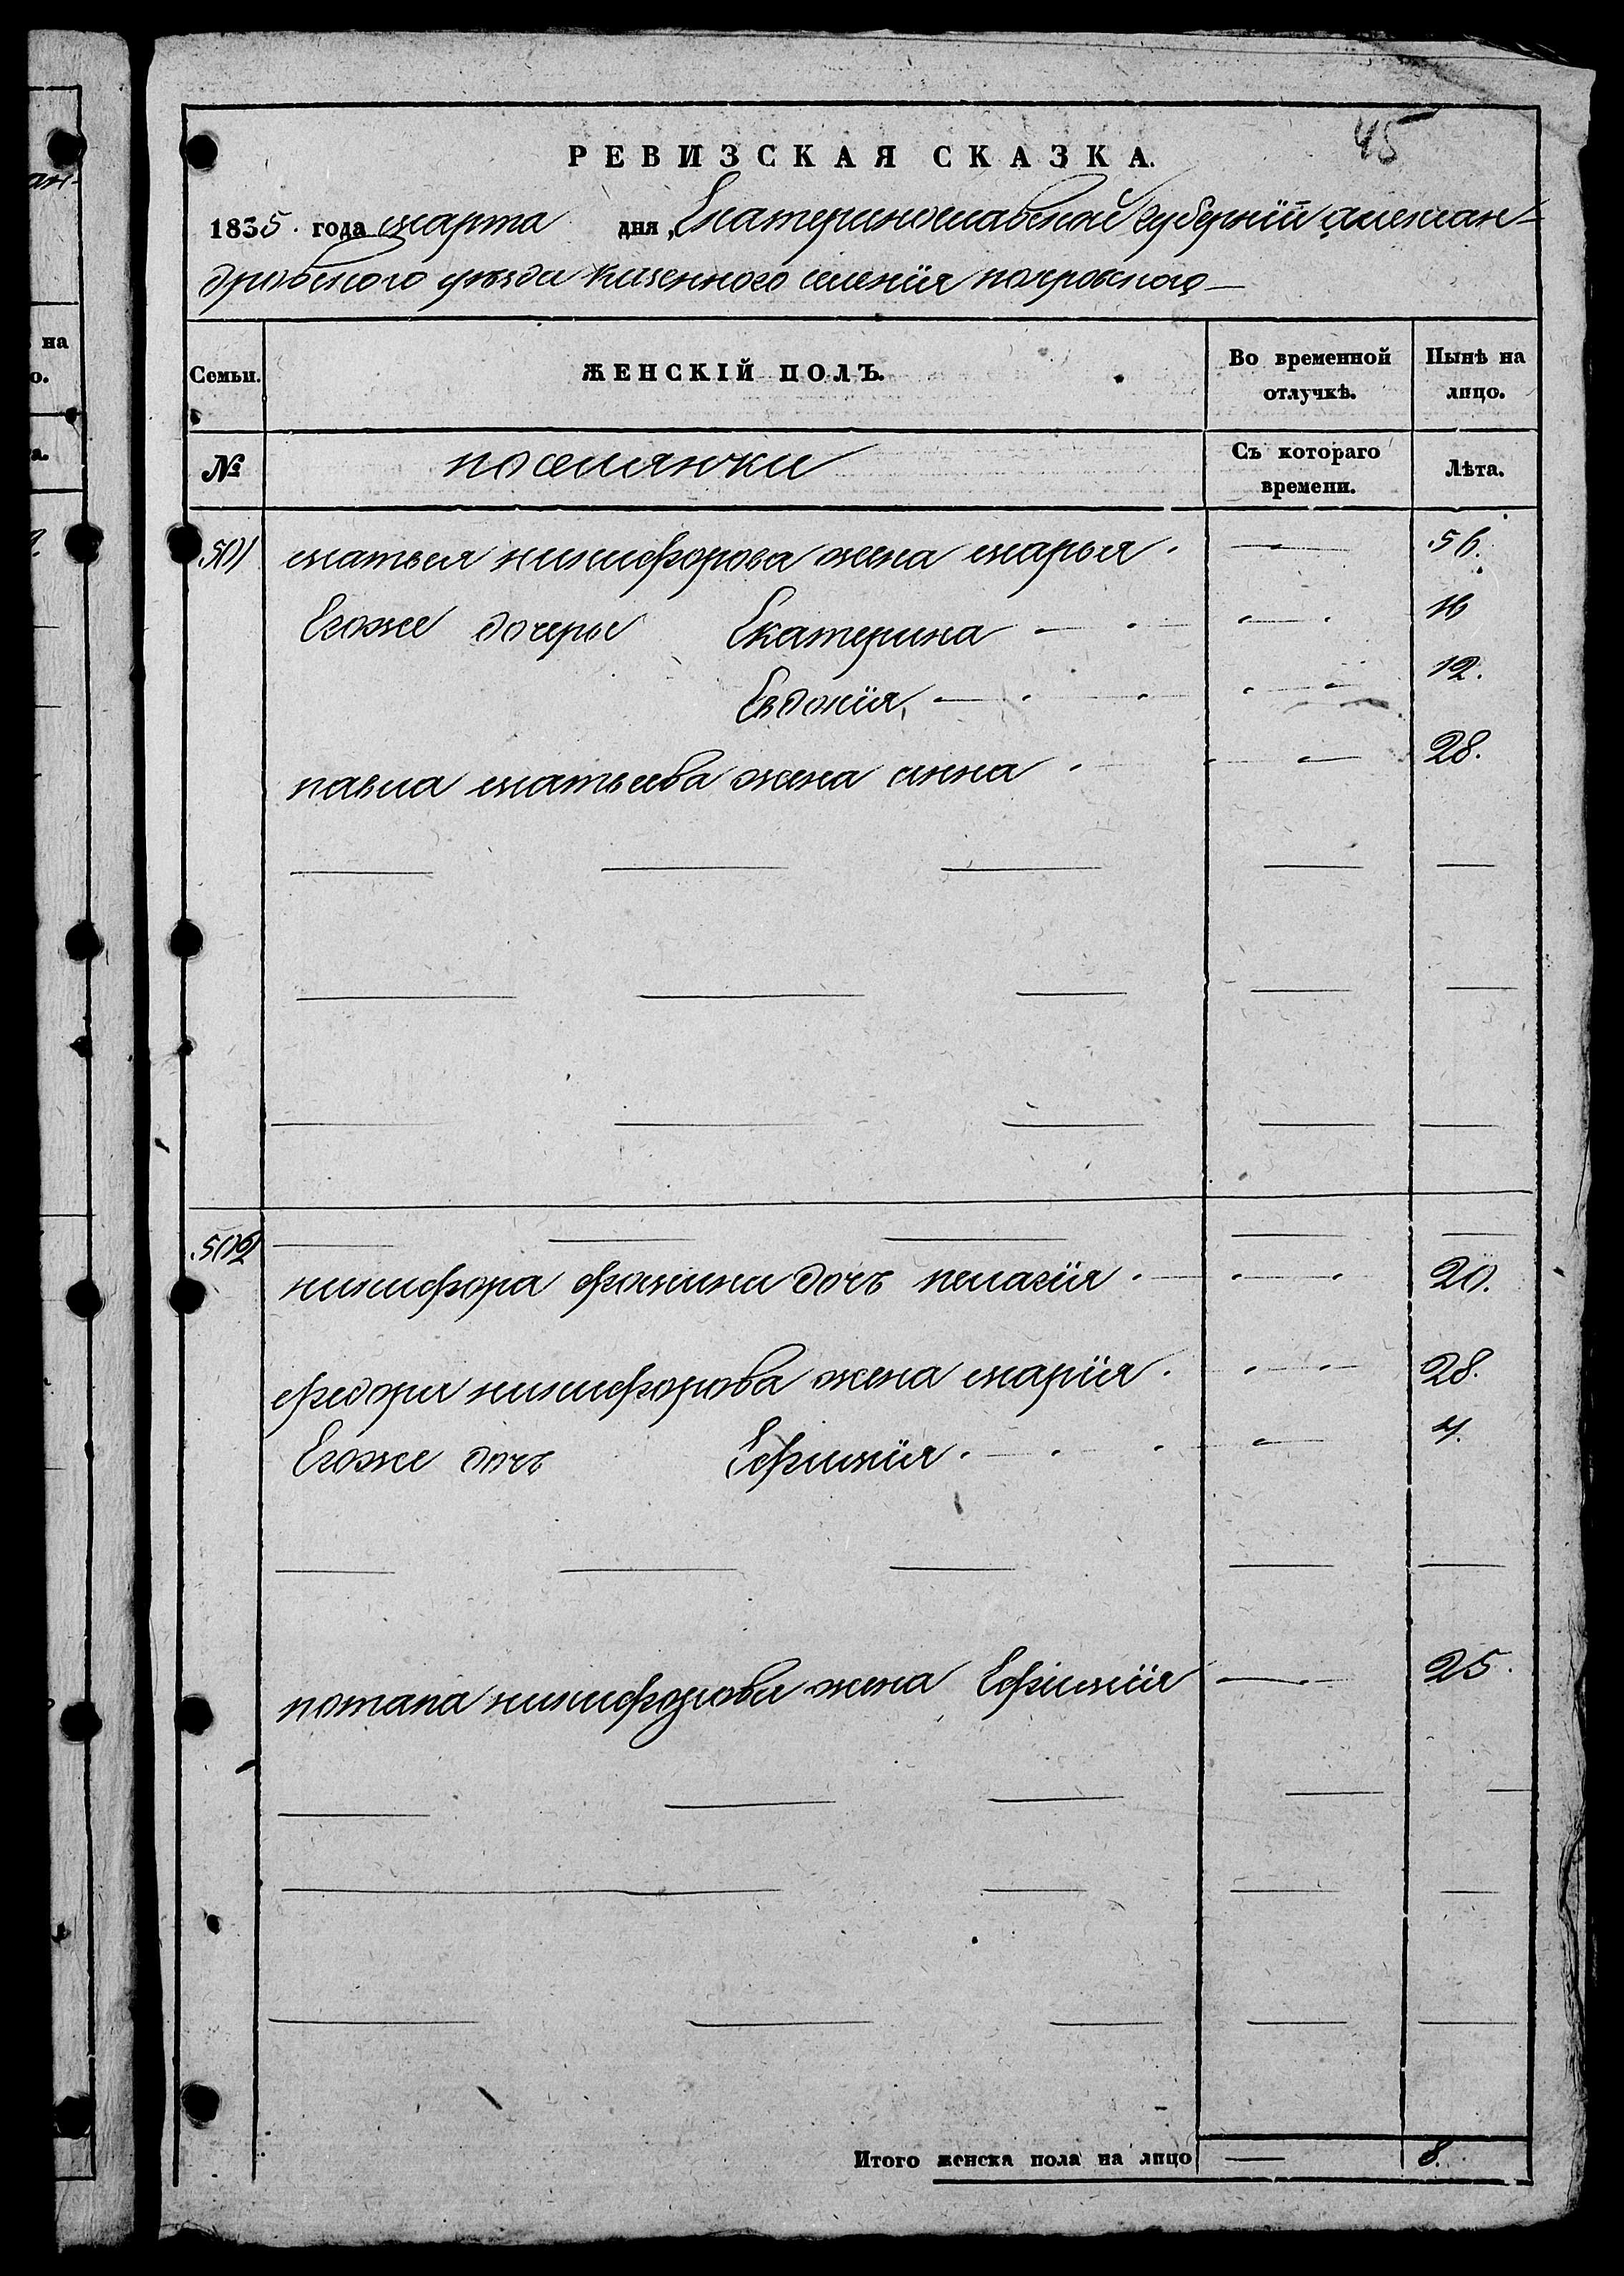 45
РЕВИЗСКАЯ СКАЗКА.
1835. года марта дня, Екатеринославской губернїи алексан-
дровского уѣзда казенного селенїя покровского
Семьи. ЖЕНСКІЙ ПОЛЪ. Во временной отлучкѣ. Нынѣ на лицо.
№ поселянки Съ котораго времени. Лѣта.
501 матвея никифорова жена марья. — 56.
Егоже дочеры Екатерина — 16
Евдокїя, — 12.
павла матвеева жена анна. — 28.
502
никифора фомина дочъ пелагїя. — 20.
федора никифорова жена марїя. — 28.
Егоже дочъ Ефимїя. — 4.
потапа никифорова жена Ефимїя — 25.
Итого женска пола на лицо — 8.